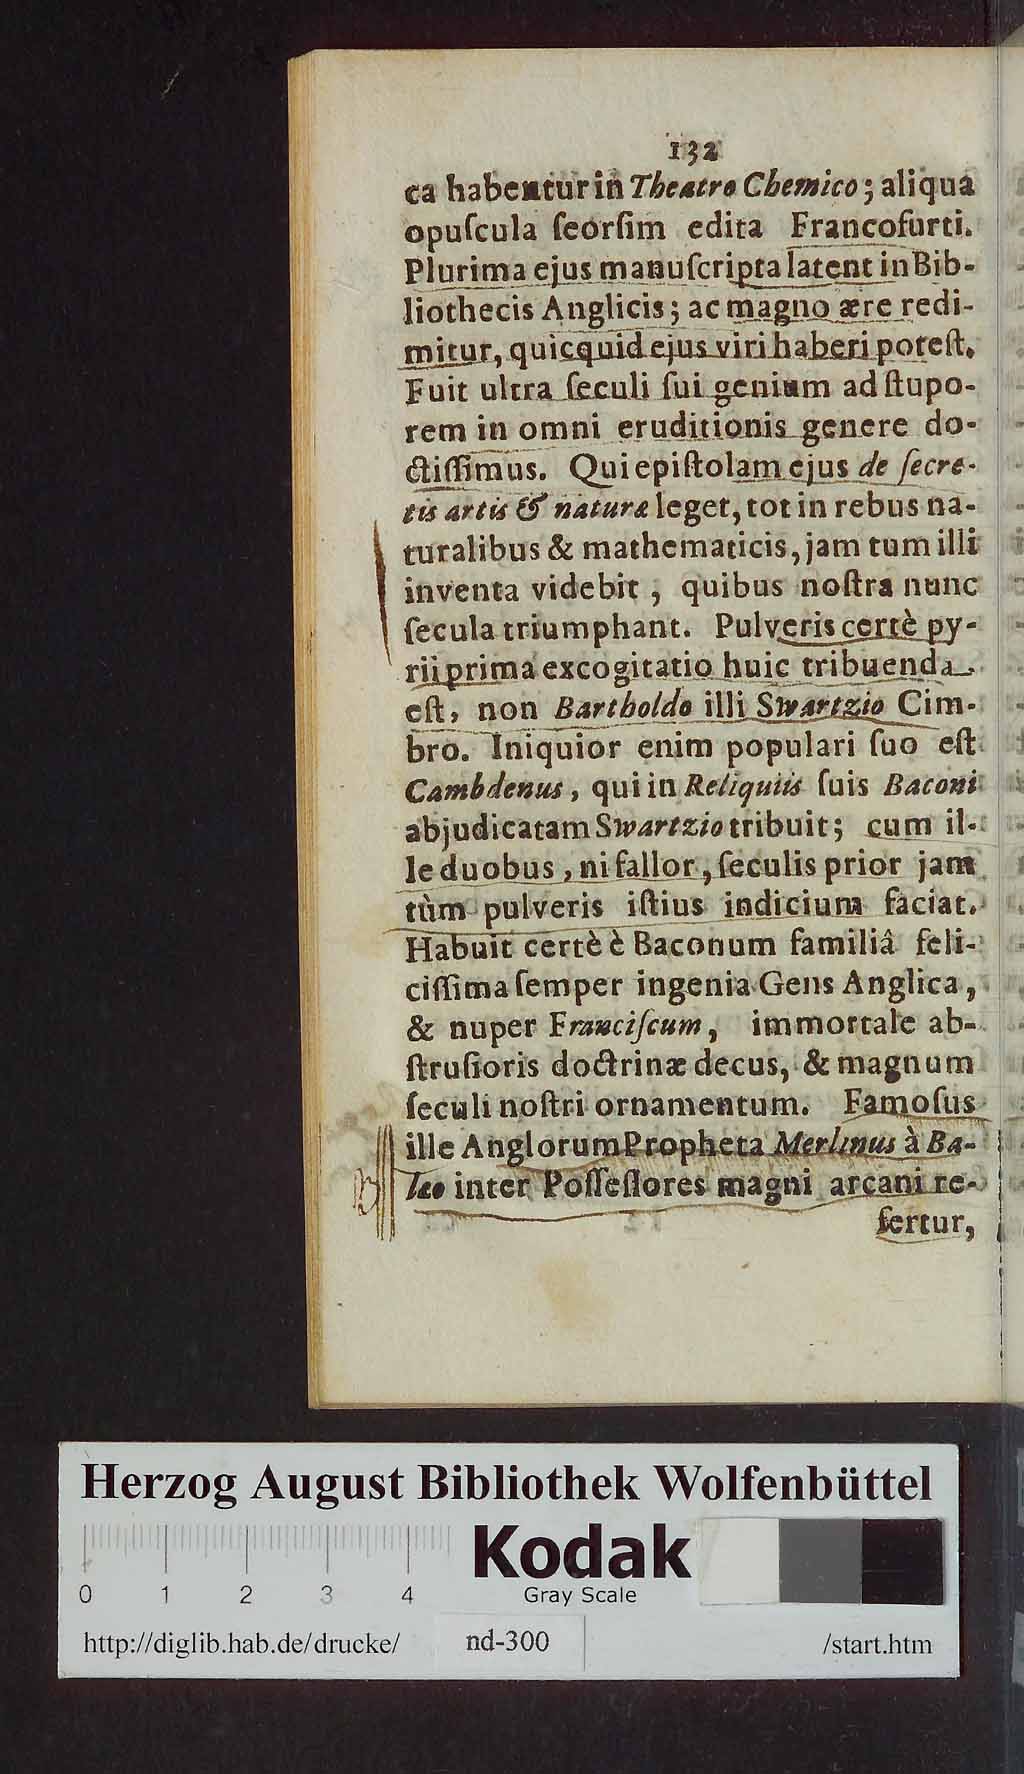 132
ca habentur in Theatro Chemico; aliqua
opuſcula ſeorſim edita Francofurti.
Plurima ejus manuſcripta latent in Bib-
liothecis Anglicis; ac magno ære redi-
mitur, quicquid ejus viri haberi poteſt.
Fuit ultra ſeculi ſui genium ad ſtupo-
rem in omni eruditionis genere do-
ctiſſimus. Qui epiſtolam ejus de ſecre-
tis artis & naturæ leget, tot in rebus na-
turalibus & mathematicis, jam tum illi
inventa videbit, quibus noſtra nunc
ſecula triumphant. Pulveris certè py-
rii prima excogitatio huic tribuenda
eſt, non Bartholdo illi Swartzio Cim-
bro. Iniquior enim populari ſuo eſt
Cambdenus, qui in Reliquiis ſuis Baconi
abjudicatam Swartzio tribuit; cum il-
le duobus, ni fallor, ſeculis prior jam
tùm pulveris iſtius indicium faciat.
Habuit certè è Baconum familiâ feli-
ciſſima ſemper ingenia Gens Anglica,
& nuper Franciſcum, immortale ab-
ſtruſioris doctrinæ decus, & magnum
ſeculi noſtri ornamentum. Famoſus
ille Anglorum Propheta Merlinus à Ba-
læo inter Poſſeſſores magni arcani re-
fertur,
Herzog August Bibliothek Wolfenbüttel
0 1 2 3 4
Kodak
Gray Scale
http://diglib.hab.de/drucke/ nd-300 /start.htm